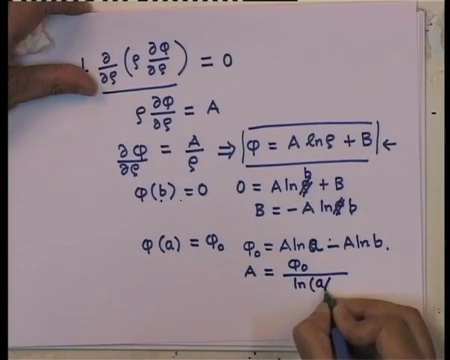 1. ∂/∂ρ (ρ ∂φ/∂ρ) = 0
ρ ∂φ/∂ρ = A
∂φ/∂ρ = A/ρ ⇒ φ = A ln ρ + B ←
φ(b) = 0 0 = A ln b + B
B = - A ln b
φ(a) = φ₀ φ₀ = A ln a - A ln b.
A = φ₀ / ln(a/